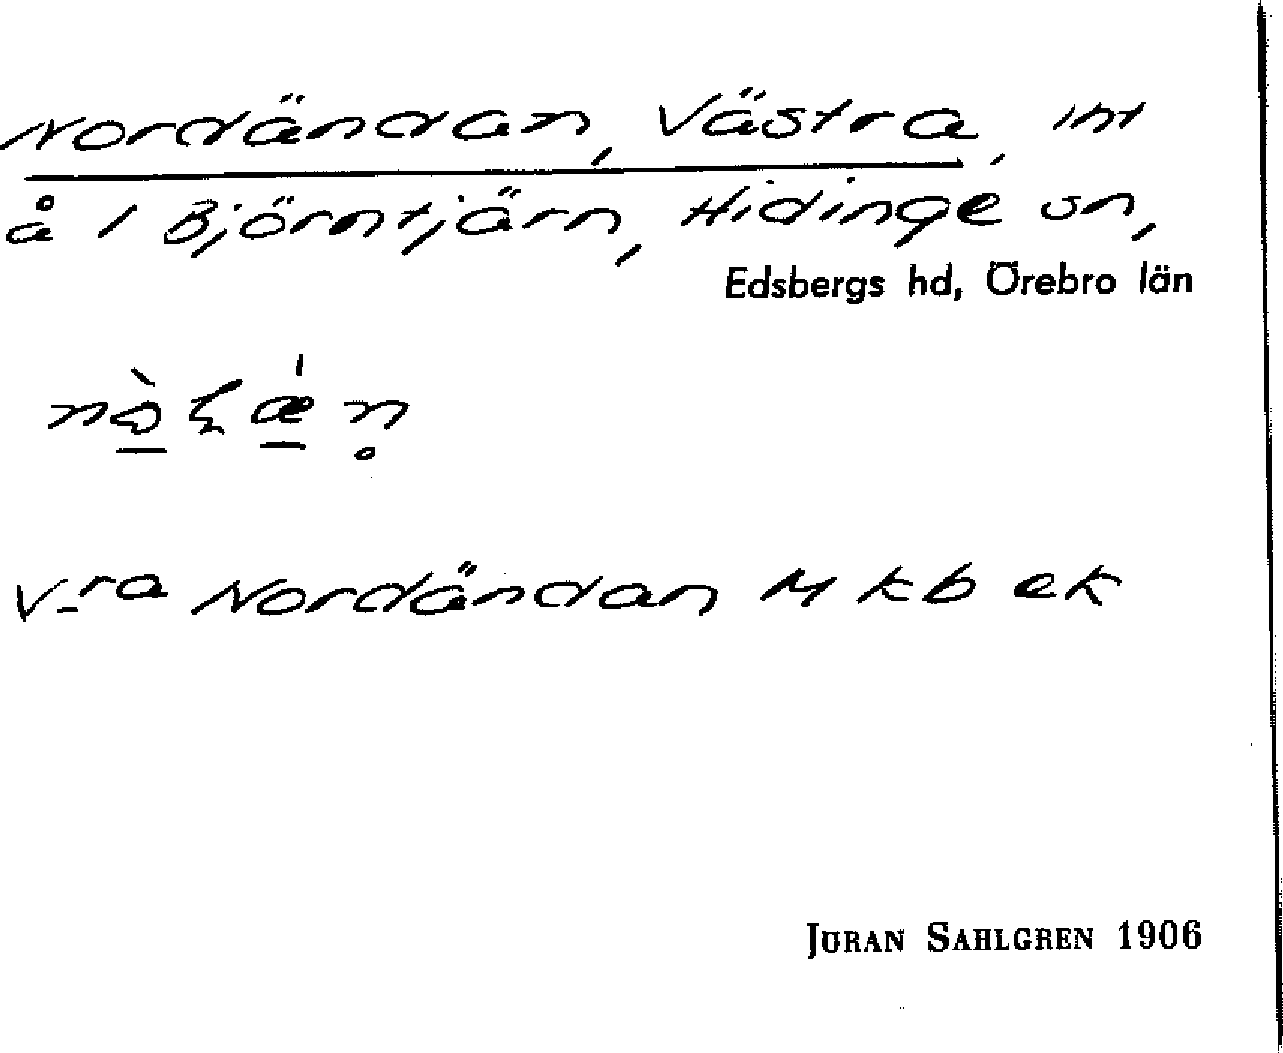 Nordändan, Västra, int
å 1 Björntjärn, Hidinge sn,
Edsbergs hd, Örebro län
Vra Nordändan M kb ek
JÖRAN SAHLGREN 1906